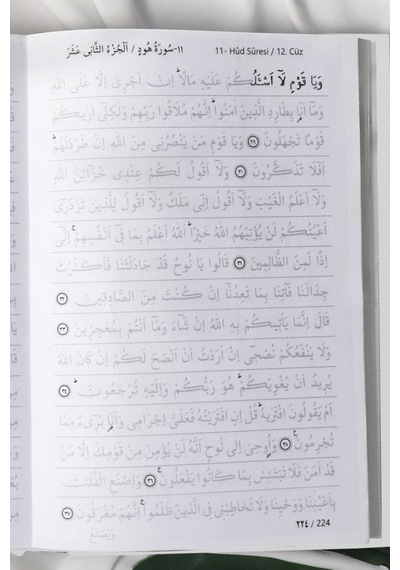 ١١-سُورَةُ هُودٍ / اَلْجُزْءُ الثَّانِى عَشَرَ
11- Hûd Sûresi / 12. Cüz
وَيَا قَوْمِ لَٓا اَسْـَٔلُكُمْ عَلَيْهِ مَالًاۜ اِنْ اَجْرِىَ اِلَّا عَلَى اللّٰهِ
وَمَٓا اَنَا۬ بِطَارِدِ الَّذ۪ينَ اٰمَنُواۜ اِنَّهُمْ مُلَاقُوا رَبِّهِمْ وَلٰكِنّ۪ٓى اَرٰيكُمْ
قَوْمًا تَجْهَلُونَ ﴿٢٩﴾ وَيَا قَوْمِ مَنْ يَنْصُرُن۪ى مِنَ اللّٰهِ اِنْ طَرَدْتُهُمْۜ
اَفَلَا تَذَكَّرُونَ ﴿٣٠﴾ وَلَٓا اَقُولُ لَكُمْ عِنْد۪ى خَزَٓائِنُ اللّٰهِ
وَلَٓا اَعْلَمُ الْغَيْبَ وَلَٓا اَقُولُ اِنّ۪ى مَلَكٌ وَلَٓا اَقُولُ لِلَّذ۪ينَ تَزْدَر۪ٓى
اَعْيُنُكُمْ لَنْ يُؤْتِيَهُمُ اللّٰهُ خَيْرًاۜ اَللّٰهُ اَعْلَمُ بِمَا ف۪ٓى اَنْفُسِهِمْۚ اِنّ۪ٓى
اِذًا لَمِنَ الظَّالِم۪ينَ ﴿٣١﴾ قَالُوا يَا نُوحُ قَدْ جَادَلْتَنَا فَاَكْثَرْتَ
جِدَالَنَا فَأْتِنَا بِمَا تَعِدُنَٓا اِنْ كُنْتَ مِنَ الصَّادِق۪ينَ ﴿٣٢﴾
قَالَ اِنَّمَا يَأْت۪يكُمْ بِهِ اللّٰهُ اِنْ شَٓاءَ وَمَٓا اَنْتُمْ بِمُعْجِز۪ينَ ﴿٣٣﴾
وَلَا يَنْفَعُكُمْ نُصْح۪ٓى اِنْ اَرَدْتُ اَنْ اَنْصَحَ لَكُمْ اِنْ كَانَ اللّٰهُ
يُر۪يدُ اَنْ يُغْوِيَكُمْۜ هُوَ رَبُّكُمْ وَاِلَيْهِ تُرْجَعُونَۜ ﴿٣٤﴾
اَمْ يَقُولُونَ افْتَرٰيهُۜ قُلْ اِنِ افْتَرَيْتُهُ فَعَلَىَّ اِجْرَام۪ى وَاَنَا۬ بَر۪ٓىءٌ مِمَّا
تُجْرِمُونَ۟ ﴿٣٥﴾ وَاُو۫حِىَ اِلٰى نُوحٍ اَنَّهُ لَنْ يُؤْمِنَ مِنْ قَوْمِكَ اِلَّا مَنْ
قَدْ اٰمَنَ فَلَا تَبْتَئِسْ بِمَا كَانُوا يَفْعَلُونَۚ ﴿٣٦﴾ وَاصْنَعِ الْفُلْكَ
بِاَعْيُنِنَا وَوَحْيِنَا وَلَا تُخَاطِبْن۪ى فِى الَّذ۪ينَ ظَلَمُواۚ اِنَّهُمْ مُغْرَقُونَ ﴿٣٧﴾
وَيَصْنَعُ
٢٢٤ / 224